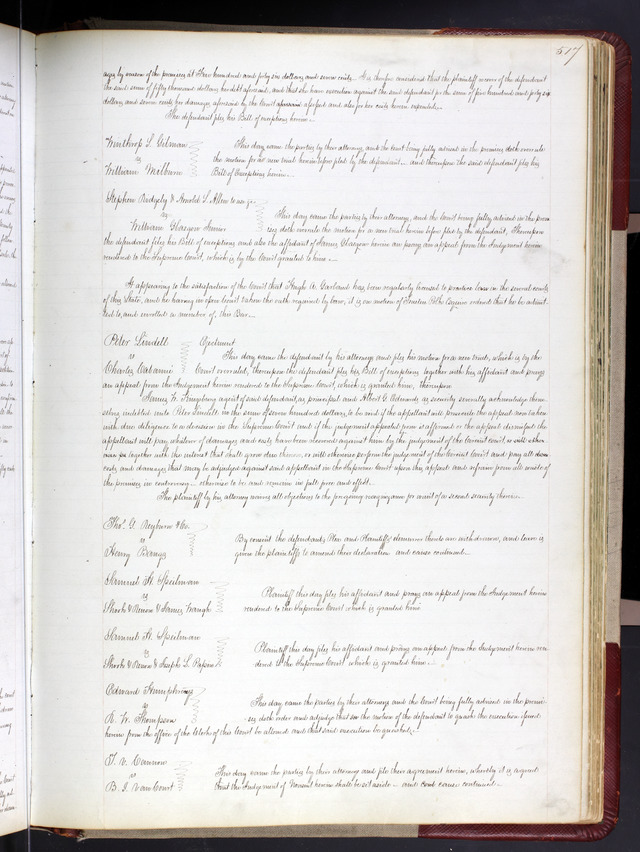 517
ages by reason of the premises at Five hundred and forty six dollars and seven cents. It is therefore considered that the plaintiff recover of the defendant
the said sum of fifty thousand dollars her debt aforesaid, and that she have execution against the said defendant for the sum of five hundred and forty six
dollars and seven cents her damages aforesaid by the Court aforesaid assessed and also for her costs herein expended.
The defendant files his Bill of exceptions herein.
Winthrop S. Gilman
vs
William Milburn
This day came the parties by their attorneys, and the Court being fully advised in the premises doth overrule
the motion for a new trial heretofore filed by the defendant and thereupon the said defendant files his
Bill of Exceptions herein.
Stephen Ridgely &
vs
William Glasgow Junior
This day came the parties by their attorneys, and the Court being fully advised in the prem
ises doth overrule the motion for a new trial herein before filed by the defendant. Thereupon
the defendant files his Bill of exceptions and also the affidavit of James Glasgow herein and prays an appeal from the Judgement herein
rendered to the Supreme Court, which is by the Court granted to him.
It appearing to the satisfaction of the Court that Hugh A. Garland has been regularly licensed to practice law in the several courts
of this State, and he having in open Court taken the oath required by law, it is on motion of Trusten Polk Esquire ordered that he be admit-
ted to, and enrolled a member of, this Bar.
Peter Lindell
vs
Charles Cabanné
Ejectment
This day came the defendant by his attorneys and files his motion for a new trial, which is by the
Court overruled, thereupon the defendant files his Bill of exceptions, together with his affidavit and prays
an appeal from the Judgement herein rendered to the Supreme Court, which is granted him, thereupon
James W. Kingsbury agent of said defendant, as principal and Albert G. Edwards as security severally acknowledge them-
selves indebted unto Peter Lindell in the sum of seven hundred dollars, to be void if the appellant will prosecute the appeal now taken
with due diligence to a decision in the Supreme Court and if the judgement appealed from be affirmed or the appeal dismissed the
appellant will pay whatever of damages and costs have been recovered against him by the judgement of the Circuit court,
together with the interest that shall grow due thereon, or will otherwise perform the judgement of the Circuit Court and pay all
costs and damages that may be adjudged against said appellant in the Supreme Court upon this appeal and refrain from all waste of
the premises in controversy otherwise to be and remain in full force and effect.
The plaintiff by his attorney waives all objections to the foregoing recognizance for want of a second security therein.
Thos. G. Reyburn & Co.
vs
Henry Bangs
By consent the defendants Plea and Plaintiffs demurrer thereto are withdrawn, and leave is
given the plaintiffs to amend their declaration and cause continued.
Samuel H. Speilman
vs
& James Waugh
Plaintiff this day files his affidavit and prays an appeal from the Judgement herein
rendered to the Supreme Court which is granted him
Samuel H. Speilman
vs
& Joseph L. Papin
Plaintiff this day files his affidavit and prays an appeal from the Judgement herein ren-
dered to the Supreme Court which is granted him.
Edward Humphreys
vs
R. W. Thompson
This day came the parties by their attorneys and the Court being fully advised in the premi-
ses, doth order and adjudge that the motion of the defendant to quash the execution issued
herein from the office of the Clerk of this Court be allowed and that said execution be quashed.
T. V. Cannon
vs
B. J. VanCourt
This day came the parties by their attorneys and file their agreement herein, whereby it is agreed
that the Judgement of Nonsuit herein shall be set aside and cause continued.